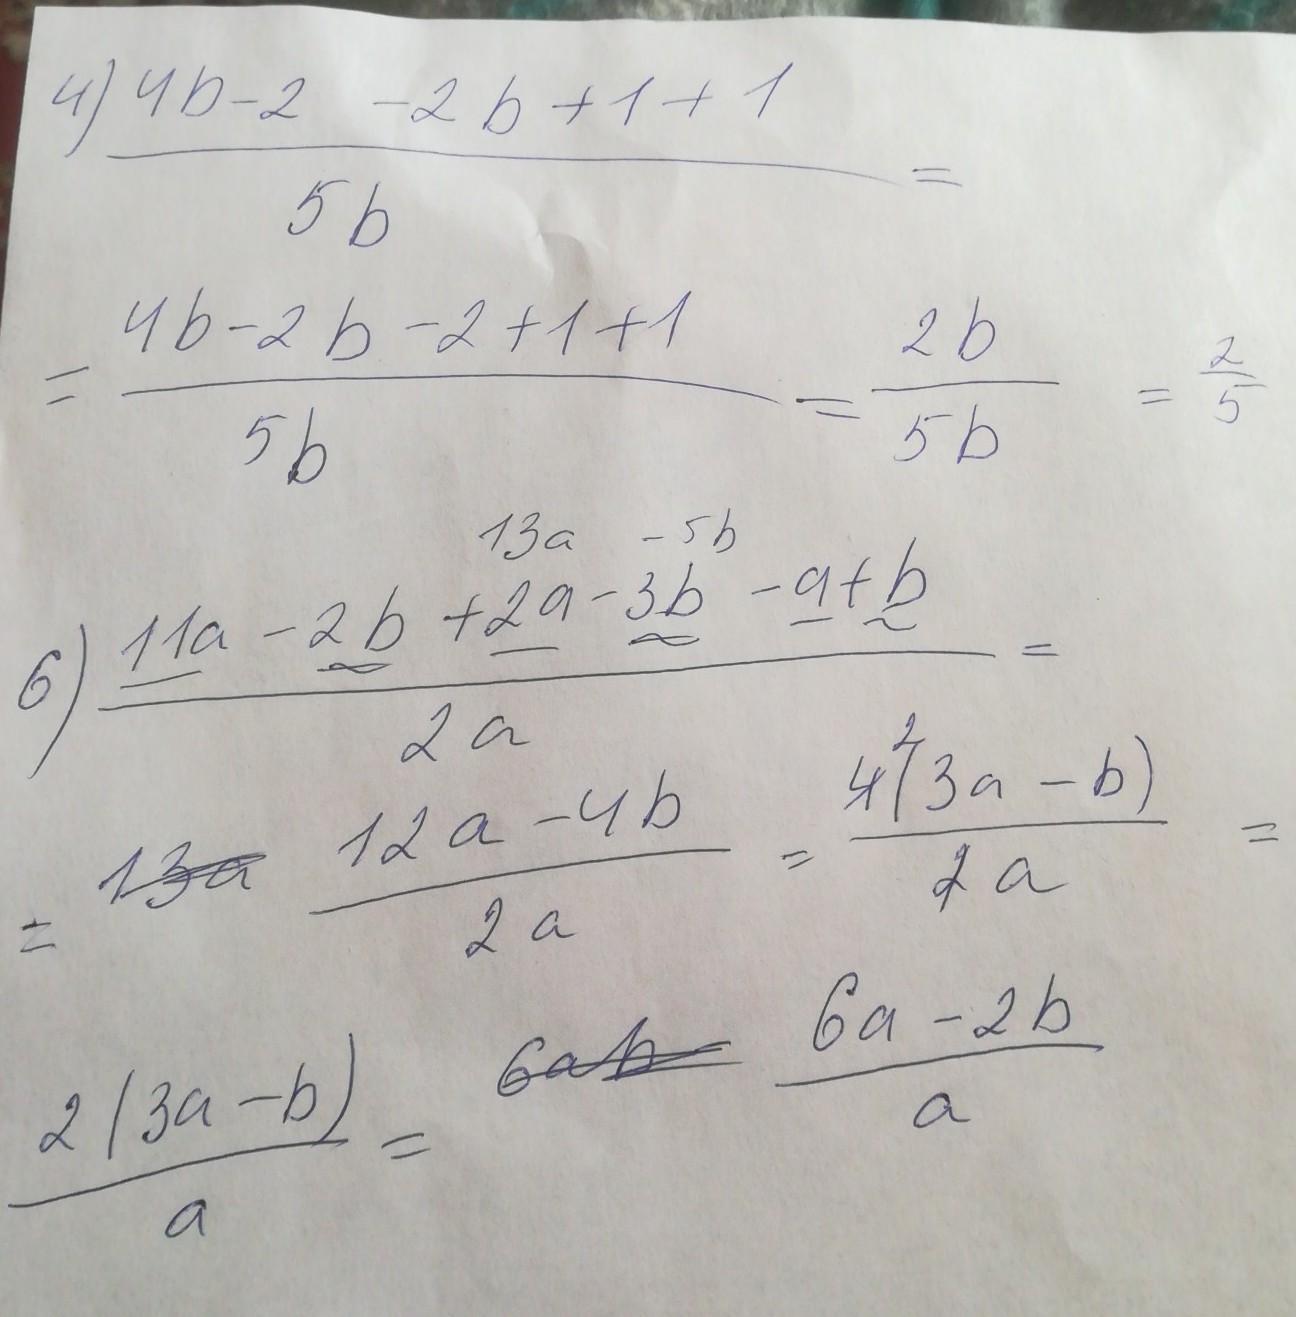 4) 4b-2 -2b+1+1
5b =
= 4b-2b-2+1+1
5b = 2b
5b = 2
5
13a -5b
6) 11a-2b+2a-3b-a+b
2a =
= 13a 12a-4b
2a = 4 2(3a-b)
2a =
2(3a-b)
a = 6ab 6a-2b
a